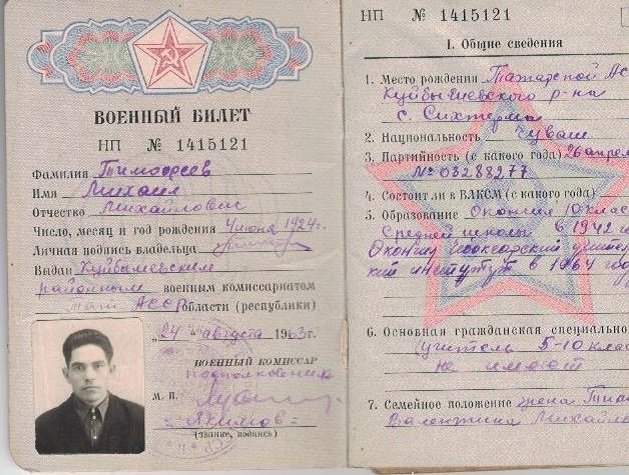 ВОЕННЫЙ БИЛЕТ
НП № 1415121
Фамилия Тимофеев
Имя Михаил
Отчество Михайлович
Число, месяц и год рождения 4 июня 1924 г.
Личная подпись владельца
Выдан Куйбышевским
районным военным комиссариатом
Тат АССР области (республики)
„24 „ августа 1963 г.
ВОЕННЫЙ КОМИССАР
подполковник
М. П.
(звание, подпись)
НП № 1415121
I. Общие сведения
1. Место рождения Татарской АС
Куйбышевского р-на
с. Сихтерма
2. Национальность Чуваш
3. Партийность (с какого года) 26 апрел
№ 03288977
4. Состоит ли в ВЛКСМ (с какого года)
5. Образование Окончил 10 клас
средней школы в 1942 г
Окончил учител
кий институт в 1964 году
6. Основная гражданская специально
(учитель 5-10 клас
не имеет
7. Семейное положение жена Тим
Валентина Михайло